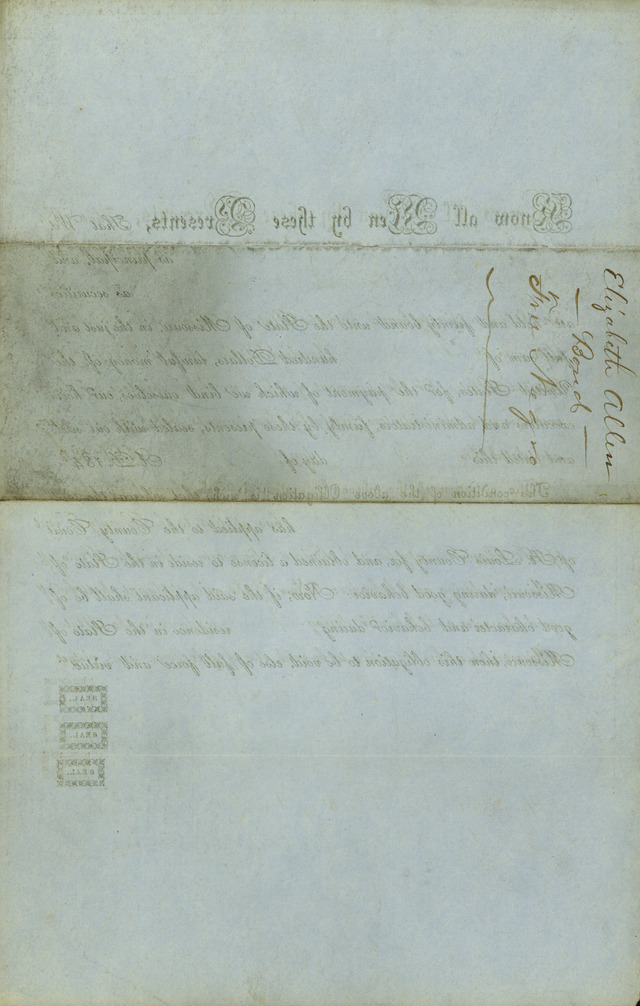 Elizabeth Allen
— Bond —
Free Negro
Know all Men by these Presents, That We,
as principal, and
as securities
are held and firmly bound unto the State of Missouri, in the just and
full sum of hundred Dollars, lawful money of the
United States, for the payment of which we bind ourselves, our heirs,
executors and administrators, firmly by these presents, sealed with our seals
and dated this day of A. D. 184
The condition of the above Obligation is such, that whereas the
has applied to the County Court
of St. Louis County for, and obtained a license to reside in the State of
Missouri, during good behavior: Now, if the said applicant shall be of
good character and behavior during residence in the State of
Missouri, then this obligation to be void, else of full force and virtue.
SEAL.
SEAL.
SEAL.